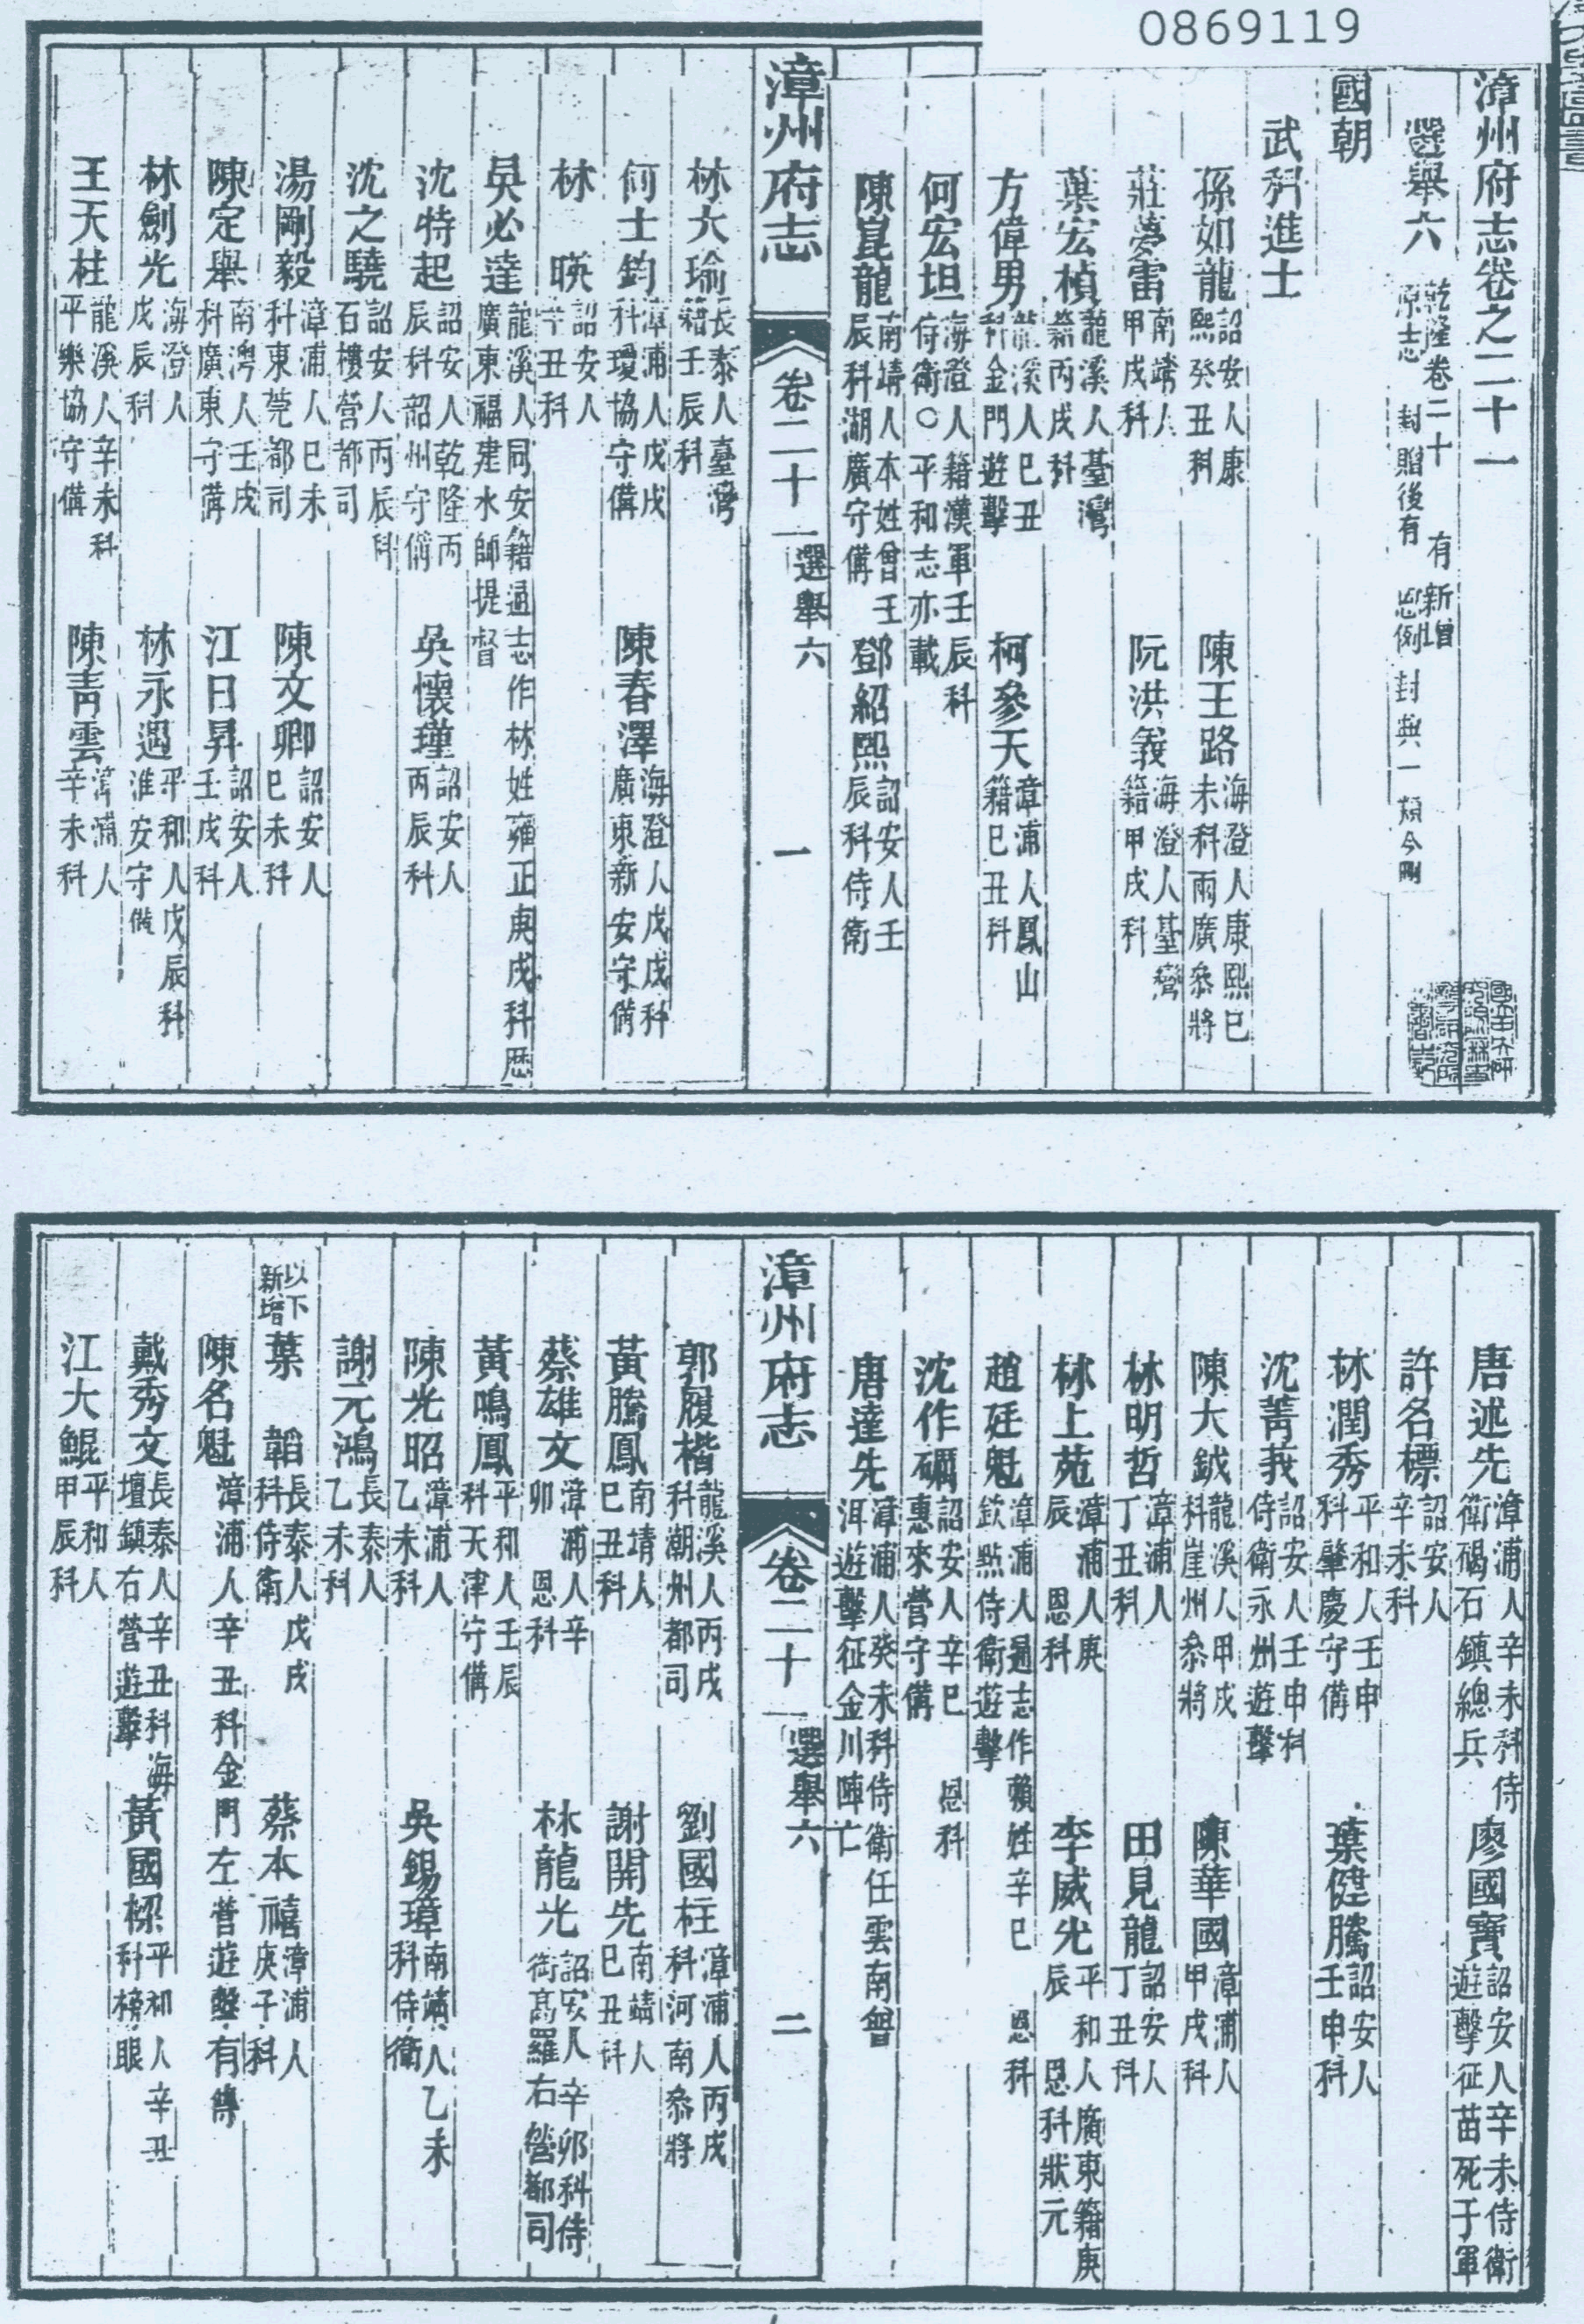 0869119
漳州府志卷之二十一
選舉六 乾隆卷二十 有新增 原志 封贈後有 恩例封典一類今刪
國朝
武科進士
孫如龍 詔安人康熙癸丑科 陳王路 海澄人康熙己未科兩廣叅將
莊夢雷 南靖人甲戌科 阮洪義 海澄人臺灣籍甲戌科
葉宏楨 龍溪人臺灣籍丙戌科
方偉男 龍溪人己丑科金門遊擊 柯參天 漳浦人鳳山籍己丑科
何宏坦 海澄人籍漢軍壬辰科侍衛○平和志亦載
陳崑龍 南靖人本姓曾壬辰科湖廣守備 鄧紹熙 詔安人壬辰科侍衛
漳州府志 卷二十一 選舉六 一
林大瑜 長泰人臺灣籍壬辰科
何士鈞 漳浦人戊戌科瓊協守備 陳春澤 海澄人戊戌科廣東新安守備
林 暎 詔安人辛丑科
吳必達 龍溪人同安籍通志作林姓雍正庚戌科歷廣東福建水師提督
沈特起 詔安人乾隆丙辰科韶州守備 吳懷瑾 詔安人丙辰科
沈之驍 詔安人丙辰科石樓營都司
湯剛毅 漳浦人己未科東莞都司 陳文卿 詔安人己未科
陳定舉 南灣人壬戌科廣東守備 江日昇 詔安人壬戌科
林劍光 海澄人戊辰科 林永遇 平和人戊辰科淮安守備
王天柱 龍溪人辛未科平樂協守備 陳靑雲 漳浦人辛未科
唐述先 漳浦人辛未科侍衛碣石鎮總兵 廖國寶 詔安人辛未侍衛遊擊征苗死于軍
許名標 詔安人辛未科
林潤秀 平和人壬申科肇慶守備 葉健騰 詔安人壬申科
沈菁莪 詔安人壬申科侍衛永州遊擊
陳大鉞 龍溪人甲戌科崖州叅將 陳華國 漳浦人甲戌科
林明哲 漳浦人丁丑科 田見龍 詔安人丁丑科
林上苑 漳浦人庚辰 恩科 李威光 平和人廣東籍庚辰 恩科狀元
趙廷魁 漳浦人通志作賴姓辛巳 恩科欽點侍衛遊擊
沈作礪 詔安人辛巳 恩科惠來營守備
唐達先 漳浦人癸未科侍衛任雲南曾洱遊擊征金川陣亡
漳州府志 卷二十一 選舉六 二
郭履楷 龍溪人丙戌科潮州都司 劉國柱 漳浦人丙戌科河南叅將
黃騰鳳 南靖人己丑科 謝開先 南靖人己丑科
蔡雄文 漳浦人辛卯 恩科 林龍光 詔安人辛卯科侍衛高羅右營都司
黃鳴鳳 平和人壬辰科天津守備
陳光昭 漳浦人乙未科 吳錫璋 南靖人乙未科侍衛
謝元鴻 長泰人乙未科
以下新增 葉 韜 長泰人戊戌科侍衛 蔡本禧 漳浦人庚子科
陳名魁 漳浦人辛丑科金門左營遊擊有傳
戴秀文 長泰人辛丑科海壇鎮右營遊擊 黃國樑 平和人辛丑科榜眼
江大鯤 平和人甲辰科